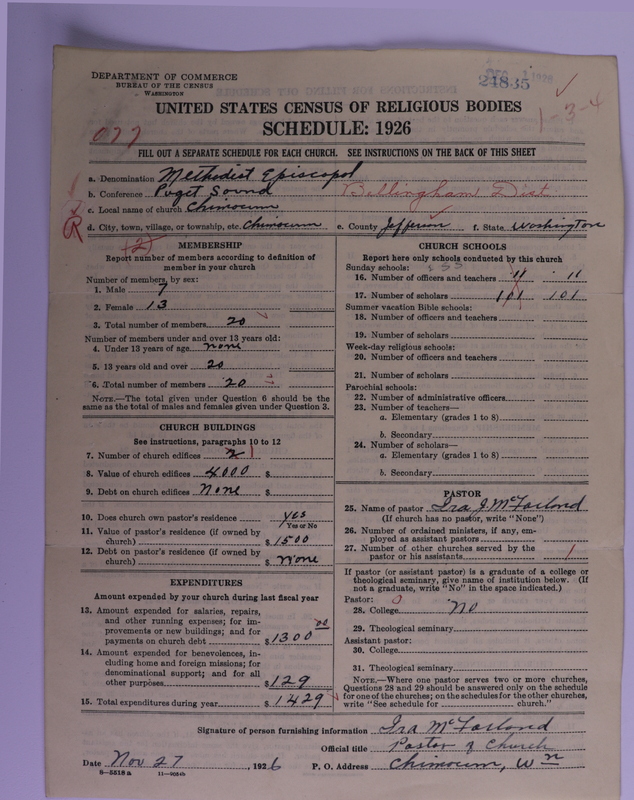 DEPARTMENT OF COMMERCE
BUREAU OF THE CENSUS
WASHINGTON
24835
1-3-4
UNITED STATES CENSUS OF RELIGIOUS BODIES
077
SCHEDULE: 1926
FILL OUT A SEPARATE SCHEDULE FOR EACH CHURCH. SEE INSTRUCTIONS ON THE BACK OF THIS SHEET
a. Denomination Methodist Episcopal
b. Conference Puget Sound Bellingham Dist
c. Local name of church Chimacum
R
d. City, town, village, or township, etc. Chimacum e. County Jefferson f. State Washington
(2)
MEMBERSHIP
Report number of members according to definition of member in your church
Number of members, by sex:
1. Male 7
2. Female 13
3. Total number of members 20
Number of members under and over 13 years old:
4. Under 13 years of age none
5. 13 years old and over 20
6. Total number of members 20
NOTE.—The total given under Question 6 should be the
same as the total of males and females given under Question 3.
CHURCH BUILDINGS
See instructions, paragraphs 10 to 12
7. Number of church edifices 2 1
8. Value of church edifices 4000 $
9. Debt on church edifices None $
10. Does church own pastor's residence yes
Yes or No
11. Value of pastor's residence (if owned by
church) $ 1500
12. Debt on pastor's residence (if owned by
church) $ None
EXPENDITURES
Amount expended by your church during last fiscal year
13. Amount expended for salaries, repairs,
and other running expenses; for im-
provements or new buildings; and for
payments on church debt $ 1300 00
14. Amount expended for benevolences, in-
cluding home and foreign missions; for
denominational support; and for all
other purposes $ 129
15. Total expenditures during year $ 1429
CHURCH SCHOOLS
Report here only schools conducted by this church
Sunday schools:
16. Number of officers and teachers 11 11
17. Number of scholars 101 101
Summer vacation Bible schools:
18. Number of officers and teachers
19. Number of scholars
Week-day religious schools:
20. Number of officers and teachers
21. Number of scholars
Parochial schools:
22. Number of administrative officers
23. Number of teachers—
a. Elementary (grades 1 to 8)
b. Secondary
24. Number of scholars—
a. Elementary (grades 1 to 8)
b. Secondary
PASTOR
25. Name of pastor Ira J McFarlond
(If church has no pastor, write "None")
26. Number of ordained ministers, if any, em-
ployed as assistant pastors
27. Number of other churches served by the
pastor or his assistants 1
If pastor (or assistant pastor) is a graduate of a college or
theological seminary, give name of institution below. (If
not a graduate, write "No" in the space indicated.)
Pastor: 0
28. College No
29. Theological seminary
Assistant pastor:
30. College
31. Theological seminary
NOTE.—Where one pastor serves two or more churches,
Questions 28 and 29 should be answered only on the schedule
for one of the churches; on the schedules for the other churches,
write "See schedule for church."
Signature of person furnishing information Ira McFarlond
Official title Pastor of Church
Date Nov 27, 1926 P. O. Address Chimacum, Wn
8-5518a 11-9054b